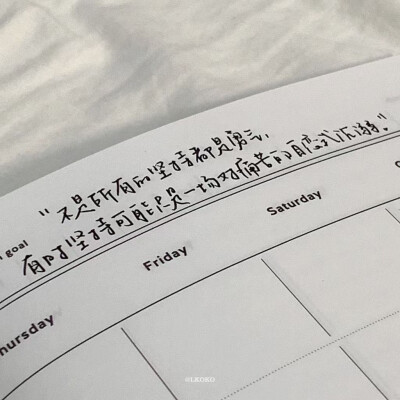 "不是所有的坚持都是勇气,
有时坚持可能只是一场对痛苦的自虐式沉溺."
goal
Thursday
Friday
Saturday
@LKOKO